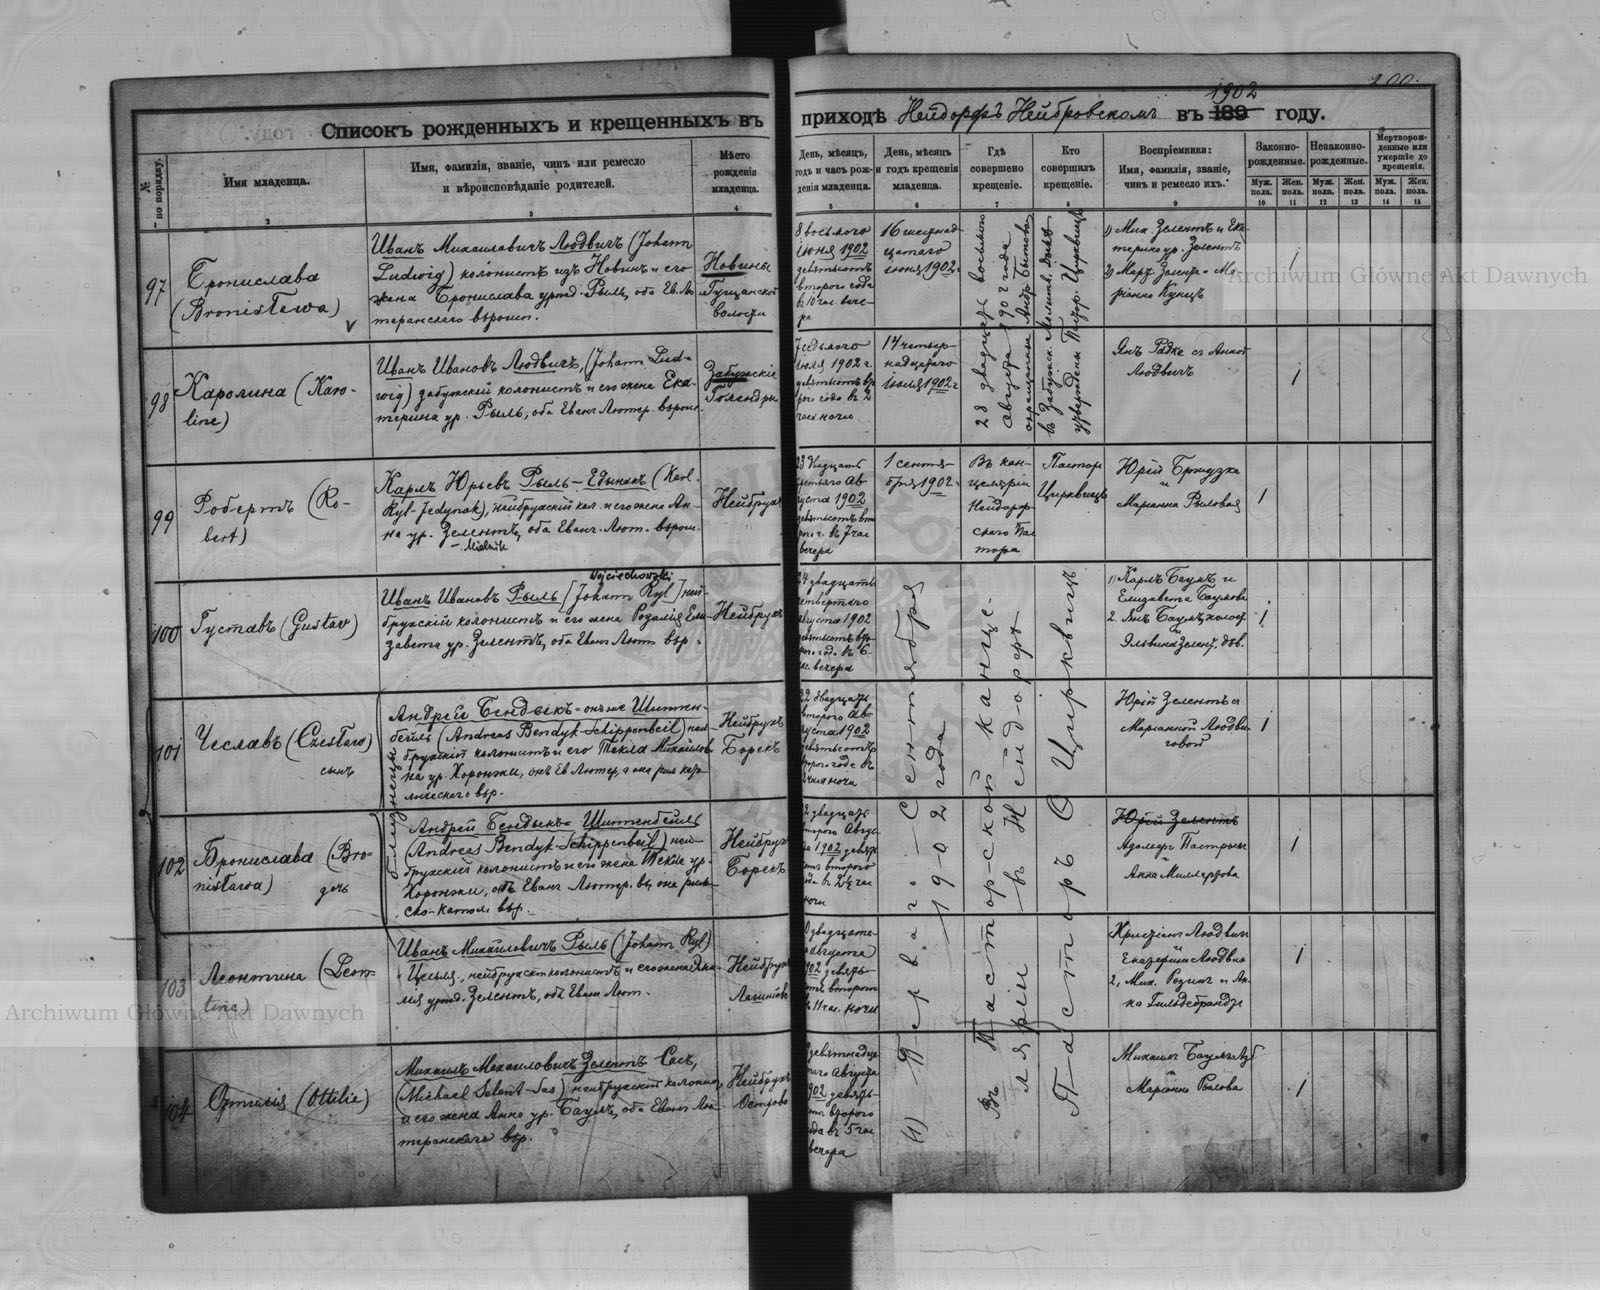 200.
Списокъ рожденныхъ и крещенныхъ въ приходѣ Нейдорфъ Нейбровскомъ въ 189 1902 году.
№ по порядку.
Имя младенца.
Имя, фамилія, званіе, чинъ или ремесло
и вѣроисповѣданіе родителей.
Мѣсто
рожденія
младенца.
День, мѣсяцъ,
годъ и часъ рож-
денія младенца.
День, мѣсяцъ
и годъ крещенія
младенца.
Гдѣ
совершено
крещеніе.
Кто
совершилъ
крещеніе.
Воспріемники:
Имя, фамилія, званіе,
чинъ и ремесло ихъ.
Законно-
рожденные.
Незаконно-
рожденные.
Мертворож-
денные или
умершіе до
крещенія.
Муж. пола.
Жен. пола.
Муж. пола.
Жен. пола.
Муж. пола.
Жен. пола.
2 3 4 5 6 7 8 9 10 11 12 13 14 15
97
Бронислава
(Bronisława)
Иванъ Михаиловичъ Людвигъ (Johann
Ludwig) колонистъ изъ Новинъ и его
жена Бронислава урожд. Рыль, оба Ев. Лю-
теранскаго вѣроисп.
Новины
Гущанской
волости
8 восьмого
іюня 1902
девятьсотъ
второго года
въ 10 час. вече-
ра
16 шестнад-
цатаго
іюня 1902 г.
28 двадцать восьмого
Августа 1902 года
1) Мих. Зелентъ и Ека-
терина ур. Зелентъ
2) Март. Зелентъ и Ма-
ріанна Кунцъ
1
98
Каролина (Karo-
line)
Иванъ Ивановъ Людвигъ, (Johann Lud-
wig) забужскій колонистъ и его жена Ека-
терина ур. Рыль, оба Еванг. Лютер. вѣроис.
Забужскіе
Голендры
7 седьмого
іюля 1902 г.
девятьсотъ вто-
рого года въ 2
часа ночи
14 четыр-
надцатаго
іюля 1902 г.
Янъ Радке съ Анной
Людвигъ
1
99
Робертъ (Ro-
bert)
Карлъ Юрьевъ Рыль-Едынакъ (Karl
Ryl-Jedynak), нейбрухскій кол. и его жена Ан-
на ур. Зелентъ, оба Еванг. Лют. вѣроис.
- Mielnik
Нейбрухъ
23 двадцать
третьяго Ав-
густа 1902
девятьсотъ вто-
рого г. въ 7 час.
вечера
1 сентя-
бря 1902 г.
Въ кан-
целяріи
Нейдорф-
скаго Пас-
тора
Пасторъ
Цирквицъ
Юрій
и
Маріанна Рыловая
1
100
Густавъ (Gustav)
Wojciechowski
Иванъ Ивановъ Рыль (Johann Ryl) ней-
брухскій колонистъ и его жена Розалія Ели-
завета ур. Зелентъ, оба Еванг. Лют. вѣр.
Нейбрухъ
24 двадцать
четвертаго
августа 1902
девятьсотъ вто-
рого год. въ 6
час. вечера
1) Карлъ Баумъ и
Елизавета Баумова
2. Янъ Баумъ холост.
и
Эльвина Зелент, дѣв.
1
101
Чеславъ (Czesław)
сынъ
близнецы
Андрей Бендыкъ-онъ же Шиппен-
бейль (Andreas Bendyk-Schippenbeil) ней-
брухскій колонистъ и его Текла Михайлов-
на ур. Хоронжи, онъ Ев. Лютер, а она рим. като-
лическаго вѣр.
Нейбрухъ
Борекъ
22 двадцать
второго Ав-
густа 1902
девятьсотъ
второго года въ
2 часа ночи
Юрій Зелентъ и
Маріанной Людви-
говой
1
102
Бронислава (Bro-
nisława)
дочь
Андрей Бендыкъ Шиппенбейль
(Andreas Bendyk-Schippenbeil) ней-
брухскій колонистъ и его жена Текла ур.
Хоронжи, онъ Еванг. Лютер. вѣ, она рим-
ско-катол. вѣр.
Нейбрухъ
Борекъ
22 двадцать
второго Авгус-
та 1902 девять-
сотъ второго
года въ 2½ час.
ночи
Юрій Зелентъ
Адольфъ Пастрыкъ
и
Анна Миллерова
1
103
Леонтина (Leon-
tine)
Иванъ Михайловичъ Рыль (Johann Ryl)
Цесля, нейбрухскій колонистъ и его жена
урожд. Зелентъ, оба Еванг. Лют.
Нейбрухъ
двадцата-
го августа
1902 девять-
сотъ второго
въ 11 час. ночи
(1) Перваго Сентября
1902 года
Въ Пасторской канце-
ляріи въ Нейдорфѣ
Пасторъ О Цирквицъ
Христіанъ Людвигъ
и
Екатерина Людвиг
2, Мих. Розинъ и Ан-
на Гильдебрандъ
1
104
Оттилія (Ottilie)
Михаилъ Михаиловичъ Зелентъ Сасъ,
(Michael Selent-Sas) нейбрухскій колонис,
и его жена Анна ур. Баумъ, оба Еванг. Лю-
теранскаго вѣр.
Нейбрухъ
Острово
девятнадца-
таго Августа
1902 девять-
сотъ второго
года въ 5 час.
вечера
Михаилъ Баумгартъ
и
Маріанна Рылова
1
Archiwum Główne Akt Dawnych
Archiwum Główne Akt Dawnych